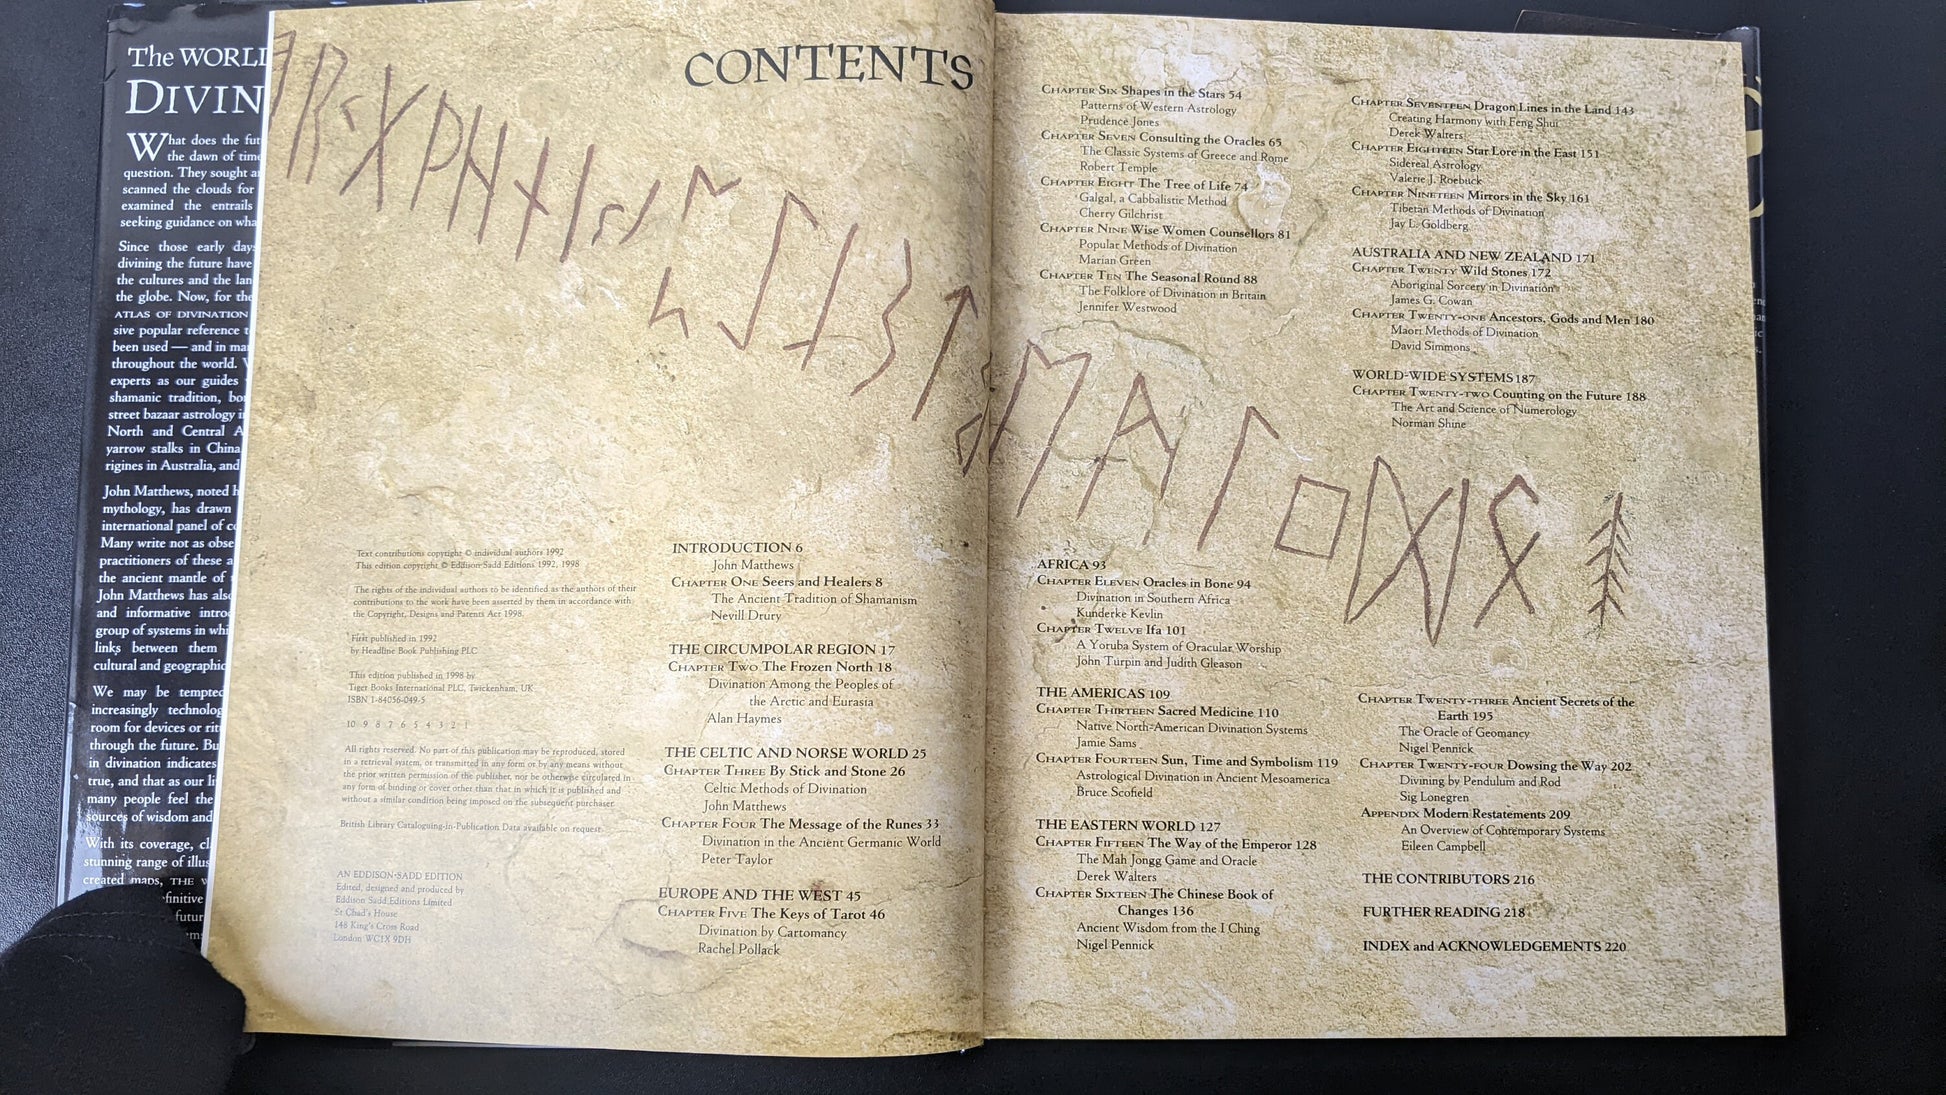 The WORLD
DIVIN
What does the fut
the dawn of time
question. They sought a
scanned the clouds for
examined the entrails
seeking guidance on wha
Since those early days
divining the future have
the cultures and the lan
the globe. Now, for the
ATLAS OF DIVINATION
sive popular reference t
been used — and in ma
throughout the world. W
experts as our guides
shamanic tradition, bo
street bazaar astrology i
North and Central A
yarrow stalks in China
rigines in Australia, and
John Matthews, noted h
mythology, has drawn
international panel of co
Many write not as obse
practitioners of these a
the ancient mantle of
John Matthews has also
and informative intro
group of systems in whi
links between them
cultural and geographic
We may be tempted
increasingly technolog
room for devices or rit
through the future. Bu
in divination indicates
true, and that as our li
many people feel the
sources of wisdom and
With its coverage, cl
stunning range of illus
created maps, THE W
finitive
futur
CONTENTS
Text contributions copyright © individual authors 1992
This edition copyright © Eddison Sadd Editions 1992, 1998
The rights of the individual authors to be identified as the authors of their
contributions to the work have been asserted by them in accordance with
the Copyright, Designs and Patents Act 1998.
First published in 1992
by Headline Book Publishing PLC
This edition published in 1998 by
Tiger Books International PLC, Twickenham, UK
ISBN 1-84056-049-5
10 9 8 7 6 5 4 3 2 1
All rights reserved. No part of this publication may be reproduced, stored
in a retrieval system, or transmitted in any form or by any means without
the prior written permission of the publisher, nor be otherwise circulated in
any form of binding or cover other than that in which it is published and
without a similar condition being imposed on the subsequent purchaser.
British Library Cataloguing-in-Publication Data available on request.
AN EDDISON·SADD EDITION
Edited, designed and produced by
Eddison Sadd Editions Limited
St Chad's House
148 King's Cross Road
London WC1X 9DH
INTRODUCTION 6
John Matthews
CHAPTER ONE Seers and Healers 8
The Ancient Tradition of Shamanism
Nevill Drury
THE CIRCUMPOLAR REGION 17
CHAPTER TWO The Frozen North 18
Divination Among the Peoples of
the Arctic and Eurasia
Alan Haymes
THE CELTIC AND NORSE WORLD 25
CHAPTER THREE By Stick and Stone 26
Celtic Methods of Divination
John Matthews
CHAPTER FOUR The Message of the Runes 33
Divination in the Ancient Germanic World
Peter Taylor
EUROPE AND THE WEST 45
CHAPTER FIVE The Keys of Tarot 46
Divination by Cartomancy
Rachel Pollack
CHAPTER SIX Shapes in the Stars 54
Patterns of Western Astrology
Prudence Jones
CHAPTER SEVEN Consulting the Oracles 65
The Classic Systems of Greece and Rome
Robert Temple
CHAPTER EIGHT The Tree of Life 74
Galgal, a Cabbalistic Method
Cherry Gilchrist
CHAPTER NINE Wise Women Counsellors 81
Popular Methods of Divination
Marian Green
CHAPTER TEN The Seasonal Round 88
The Folklore of Divination in Britain
Jennifer Westwood
AFRICA 93
CHAPTER ELEVEN Oracles in Bone 94
Divination in Southern Africa
Kunderke Kevlin
CHAPTER TWELVE Ifa 101
A Yoruba System of Oracular Worship
John Turpin and Judith Gleason
THE AMERICAS 109
CHAPTER THIRTEEN Sacred Medicine 110
Native North-American Divination Systems
Jamie Sams
CHAPTER FOURTEEN Sun, Time and Symbolism 119
Astrological Divination in Ancient Mesoamerica
Bruce Scofield
THE EASTERN WORLD 127
CHAPTER FIFTEEN The Way of the Emperor 128
The Mah Jongg Game and Oracle
Derek Walters
CHAPTER SIXTEEN The Chinese Book of
Changes 136
Ancient Wisdom from the I Ching
Nigel Pennick
CHAPTER SEVENTEEN Dragon Lines in the Land 143
Creating Harmony with Feng Shui
Derek Walters
CHAPTER EIGHTEEN Star Lore in the East 151
Sidereal Astrology
Valerie J. Roebuck
CHAPTER NINETEEN Mirrors in the Sky 161
Tibetan Methods of Divination
Jay L. Goldberg
AUSTRALIA AND NEW ZEALAND 171
CHAPTER TWENTY Wild Stones 172
Aboriginal Sorcery in Divination
James G. Cowan
CHAPTER TWENTY-ONE Ancestors, Gods and Men 180
Maori Methods of Divination
David Simmons
WORLD-WIDE SYSTEMS 187
CHAPTER TWENTY-TWO Counting on the Future 188
The Art and Science of Numerology
Norman Shine
CHAPTER TWENTY-THREE Ancient Secrets of the
Earth 195
The Oracle of Geomancy
Nigel Pennick
CHAPTER TWENTY-FOUR Dowsing the Way 202
Divining by Pendulum and Rod
Sig Lonegren
APPENDIX Modern Restatements 209
An Overview of Contemporary Systems
Eileen Campbell
THE CONTRIBUTORS 216
FURTHER READING 218
INDEX and ACKNOWLEDGEMENTS 220